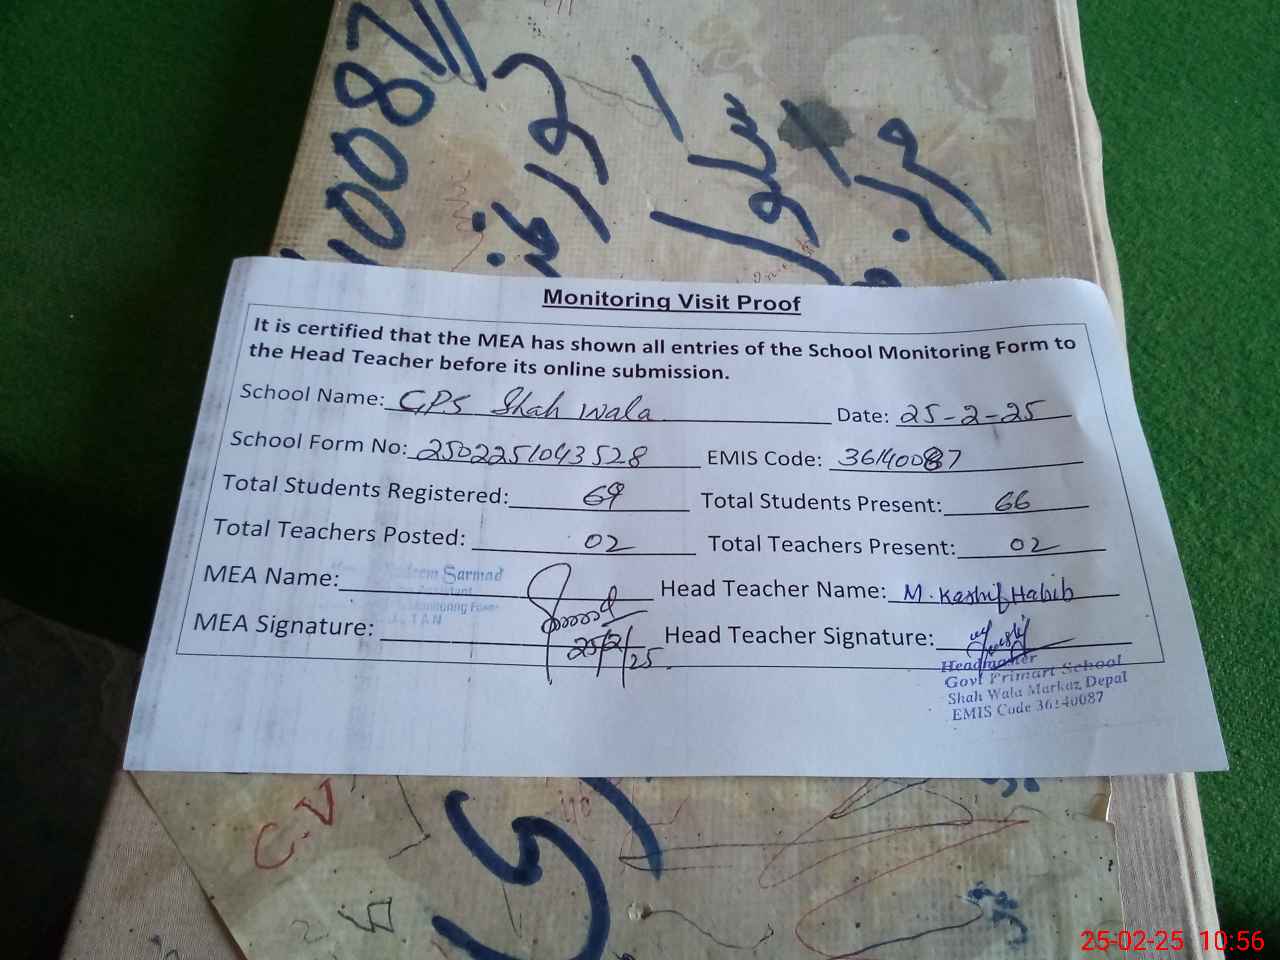 10087
Monitoring Visit Proof
It is certified that the MEA has shown all entries of the School Monitoring Form to
the Head Teacher before its online submission.
School Name: GPS Shah Wala Date: 25-2-25
School Form No: 2502251043528 EMIS Code: 36140087
Total Students Registered: 69 Total Students Present: 66
Total Teachers Posted: 02 Total Teachers Present: 02
MEA Name: Sarmad Head Teacher Name: M. Kashif Habib
MEA Signature: 25/2/25 Head Teacher Signature:
Headmaster
Govt Primart School
Shah Wala Markaz Depal
EMIS Code 36140087
C.V
25-02-25 10:56